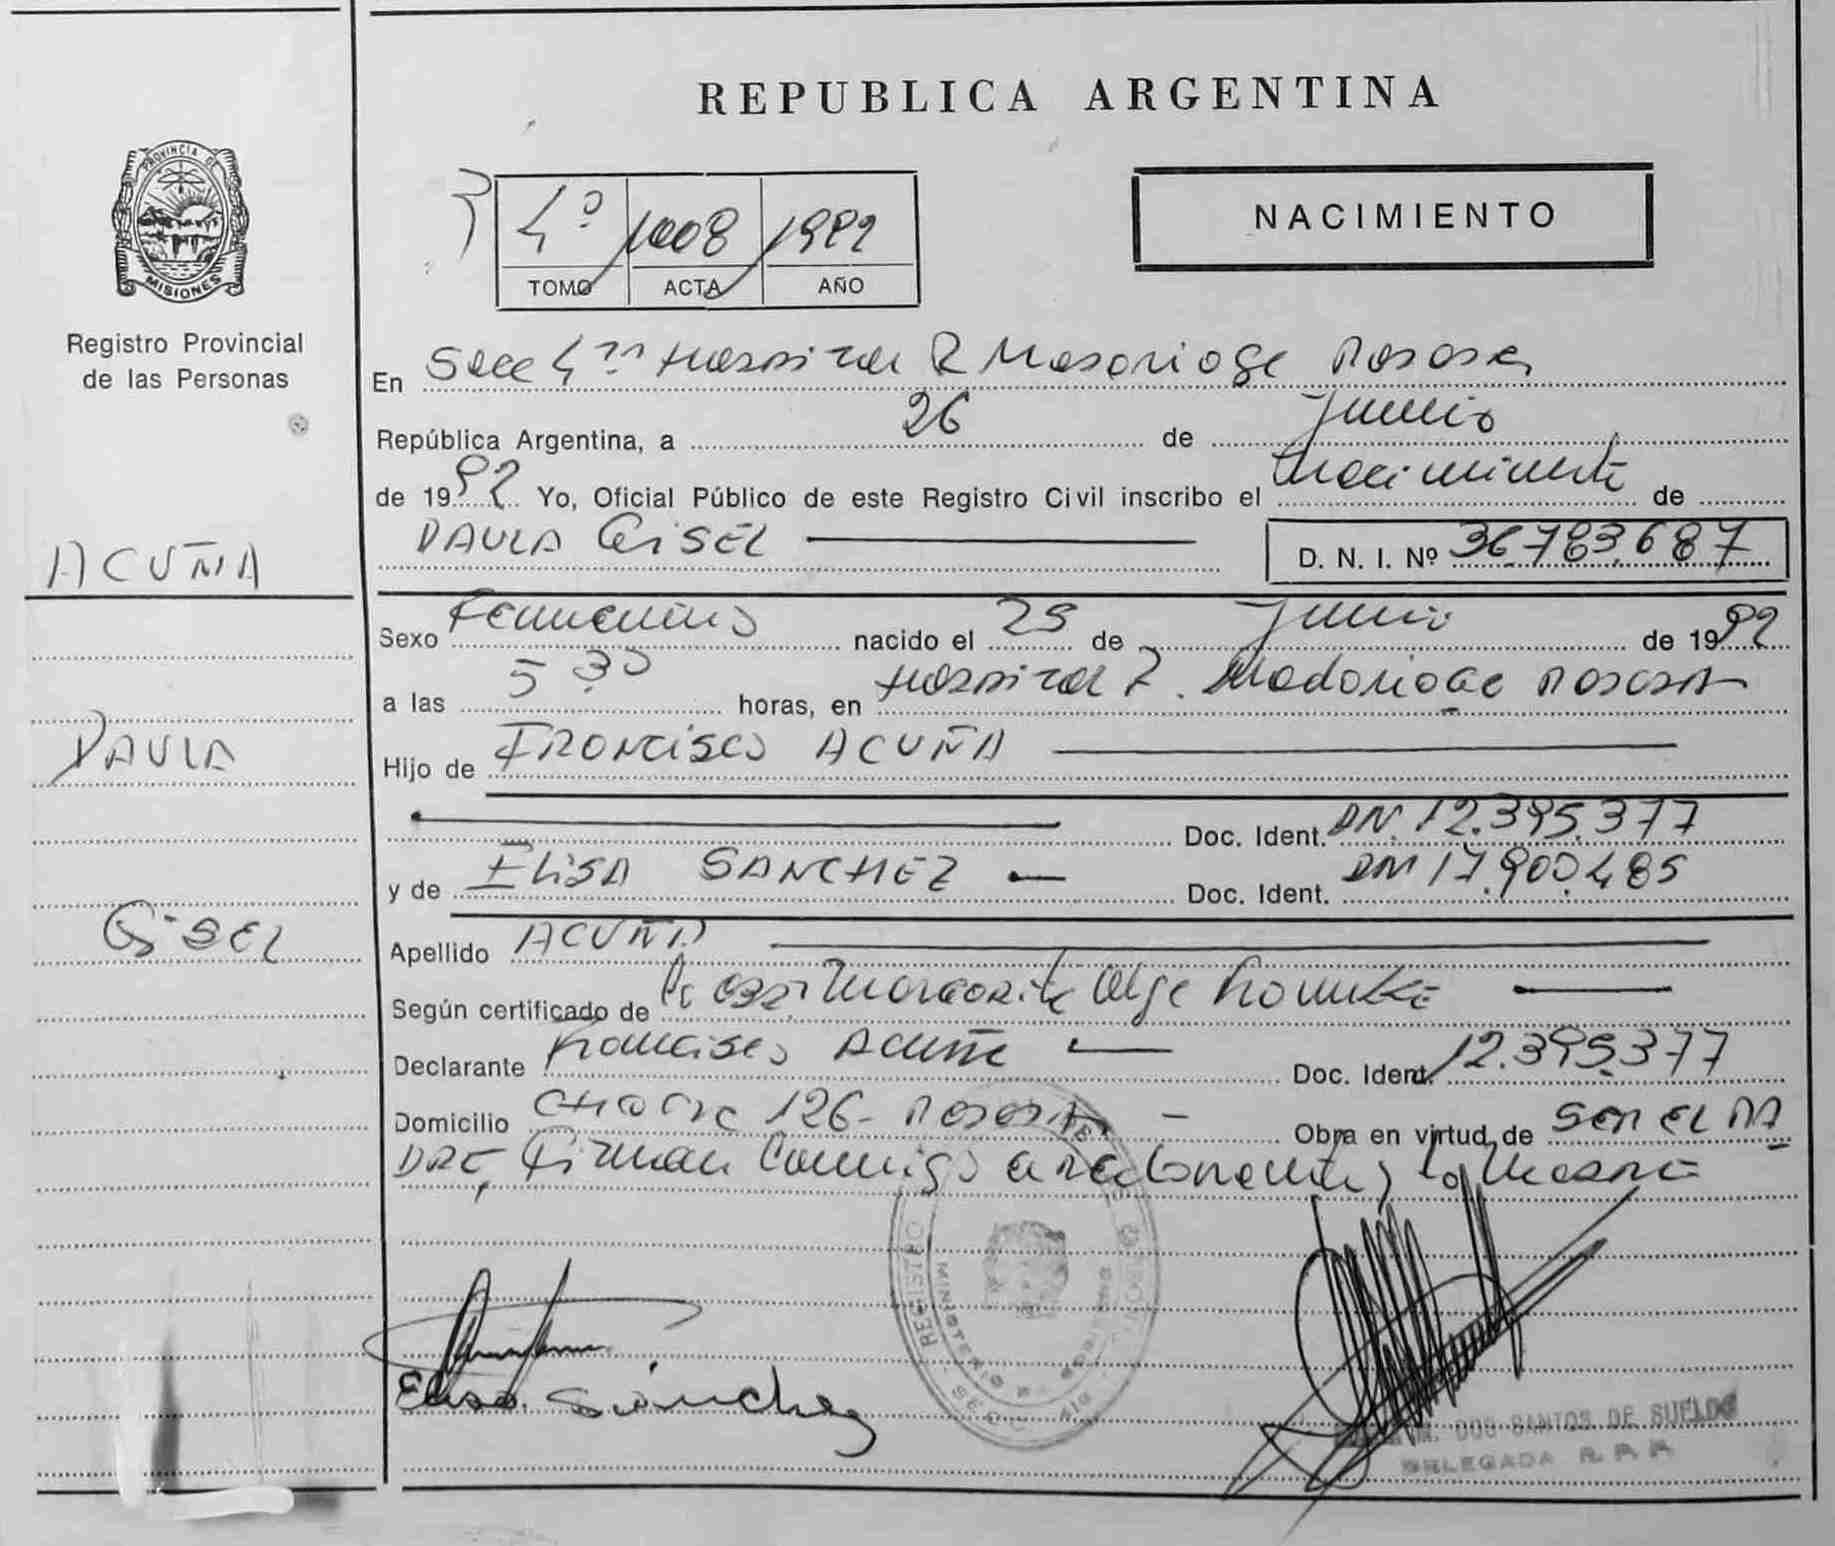 REPUBLICA ARGENTINA
PROVINCIA DE
MISIONES
Registro Provincial
de las Personas
4º 1008 1992
TOMO ACTA AÑO
NACIMIENTO
En Secc 4ta Hospital R Madariaga Posadas
República Argentina, a 26 de Junio
de 1992 Yo, Oficial Público de este Registro Civil inscribo el nacimiento de
PAULA GISEL D. N. I. Nº 36.783.687
ACUÑA
Sexo Femenino nacido el 25 de Junio de 1992
a las 5 30 horas, en Hospital R. Madariaga Posadas
PAULA
Hijo de FRANCISCO ACUÑA
Doc. Ident. DNI 12.395.377
y de ELISA SANCHEZ Doc. Ident. DNI 17.900.485
GISEL
Apellido ACUÑA
Según certificado de Margarita Olga
Declarante Francisco Acuña Doc. Ident. 12.395.377
Domicilio Chacra 126 - Posadas - Obra en virtud de ser el pa
dre, Firman Conmigo el declarante y la Madre
Elisa Sánchez
M. DOS SANTOS DE SUELDO
DELEGADA R. P. P.